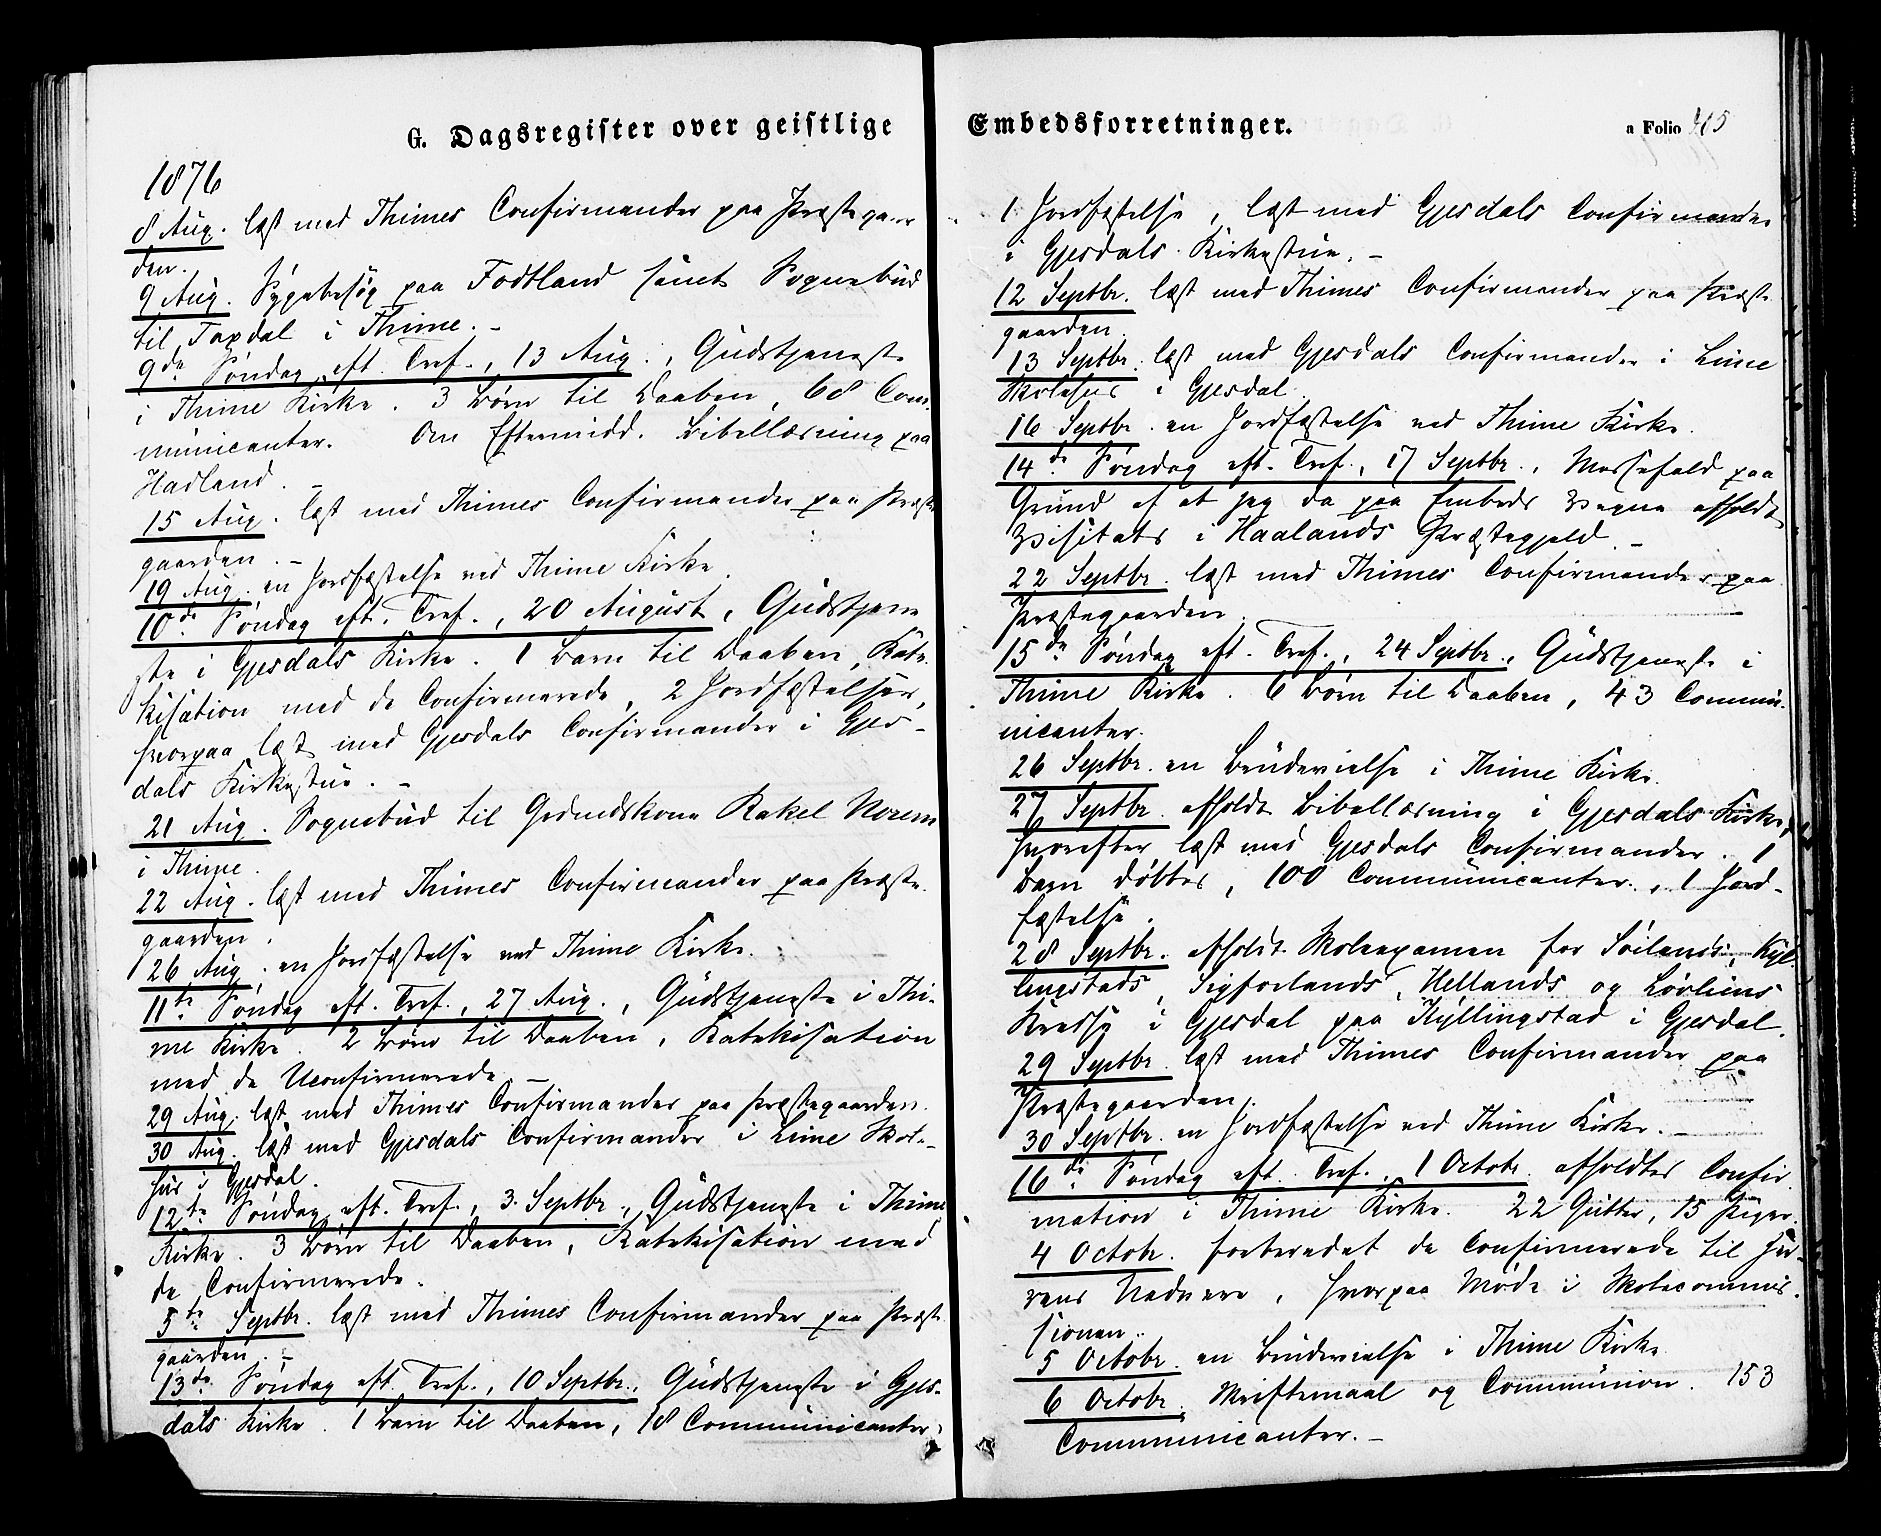 G. Dagsregister over geistlige
1876
8 Aug. læst med Thimes Confirmander paa Præstegaar
den.
9 Aug. Sygebesøg paa Fodtland samt Sognebud
til Taxdal i Thime. –
9de Søndag eft. Tref., 13 Aug., Gudstjeneste
i Thime Kirke. 3 Børn til Daaben, 68 Com-
municanter. Om Eftermidd. Bibellæsning paa
Hadland. –
15 Aug. læst med Thimes Confirmander paa Præste
gaarden. –
19 Aug. en Jordfæstelse ved Thime Kirke.
10de Søndag eft. Tref., 20 August, Gudstjene
ste i Gjesdals Kirke. 1 Barn til Daaben, Kate-
kisation med de Confirmerede, 2 Jordfæstelser,
hvorpaa læst med Gjesdals Confirmander i Gjes-
dals Kirkestue. –
21 Aug. Sognebud til Gedmdskone Rakel Norem
i Thime.
22 Aug. læst med Thimes Confirmander paa Præste-
gaarden.
26 Aug. en Jordfæstelse ved Thime Kirke.
11te Søndag eft. Tref., 27 Aug., Gudstjeneste i Thi-
me Kirke. 2 Børn til Daaben, Katekisation
med de Uconfirmerede. –
29 Aug. læst med Thimes Confirmander paa Præstegaarden.
30 Aug. læst med Gjesdals Confirmander i Lime Skole-
hus i Gjesdal.
12te Søndag eft. Tref., 3. Septbr., Gudstjeneste i Thime
Kirke. 3 Børn til Daaben, Katekisation med
de Confirmerede.
5te Septbr. læst med Thimes Confirmander paa Præste
gaarden. –
13de Søndag eft. Tref., 10 Septbr., Gudstjeneste i Gjes-
dals Kirke. 1 Barn til Daaben, 18 Communicanter,
Embedsforretninger.
a Folio 415
1 Jordfæstelse, læst med Gjesdals Confirmander
i Gjesdals Kirkestue. –
12 Septbr. læst med Thimes Confirmander paa Præste
gaarden.
13 Septbr. læst med Gjesdals Confirmander i Lime
Skolehus i Gjesdal.
16 Septbr. en Jordfæstelse ved Thime Kirke.
14de Søndag eft. Tref., 17 Septbr., Messefald paa
Grund af at jeg da paa Embeds Vegne afholdt
Visitats i Haalands Præstegjeld. –
22 Septbr. læst med Thimes Confirmander paa
Præstegaarden.
15de Søndag eft. Tref., 24 Septbr., Gudstjeneste i
Thime Kirke. 6 Børn til Daaben, 43 Commu-
nicanter.
26 Septbr. en Brudevielse i Thime Kirke.
27 Septbr. afholdt Bibellæsning i Gjesdals Kirke,
hvorefter læst med Gjesdals Confirmander. 1
Barn døbtes, 100 Communicanter, 1 Jord-
fæstelse.
28 Septbr. afholdt Skoleexamen for Søilands, Kyl-
lingstads, Sigforlands, Hellands og Lovlims
Kredse i Gjesdal paa Kyllingstad i Gjesdal.
29 Septbr. læst med Thimes Confirmander paa
Præstegaarden.
30 Septbr. en Jordfæstelse ved Thime Kirke. –
16de Søndag eft. Tref., 1 Octobr. afholdtes Confir
mation i Thime Kirke. 22 Gutter, 15 Piger.
4 Octobr. forberedet de Confirmerede til Her-
rens Nadvere, hvorpaa Møde i Skolecommis-
sionen.
5 Octobr. en Brudevielse i Thime Kirke
6 Octobr. Skriftemaal og Communion. 153
Communicanter. –